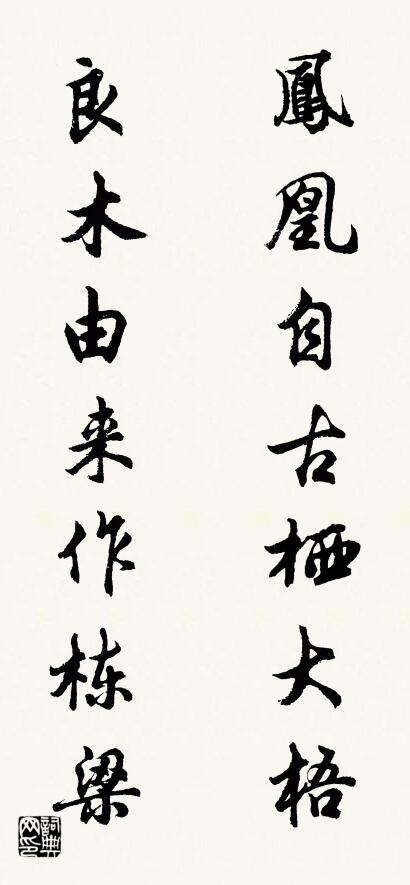 鳳凰自古栖大梧
良木由来作栋梁
詞典网印